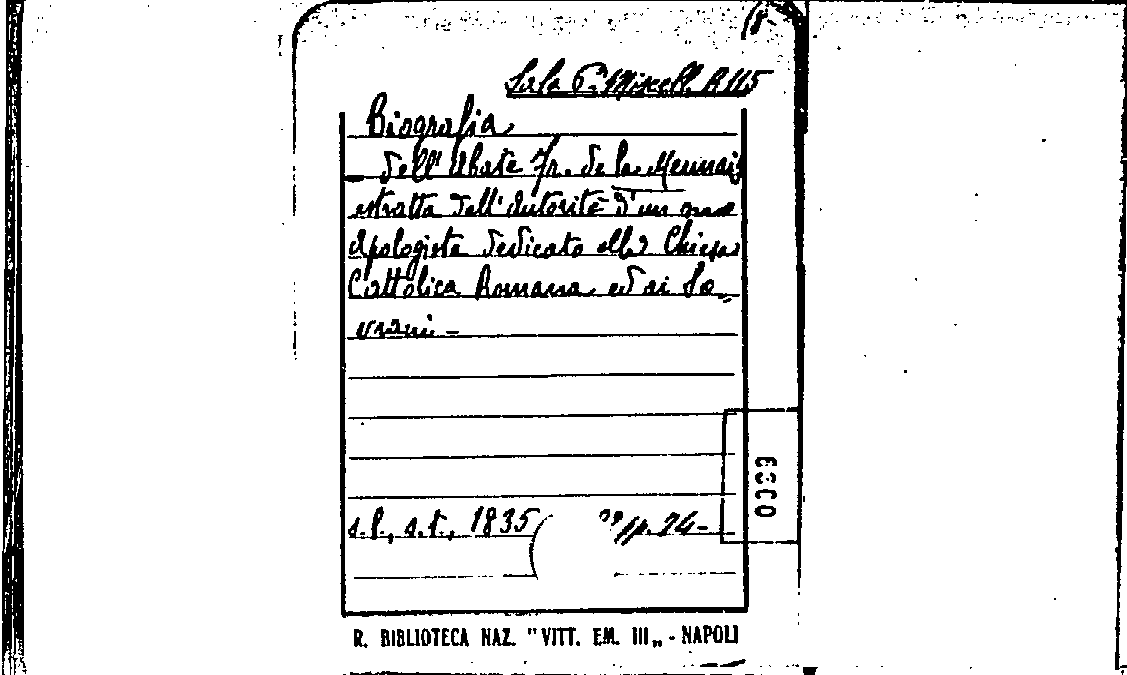 18-
Sala 6ª Miscell. B 115
Biografia
dell'Abate Fr. de la Mennais
estratta dall'autorità d'un
Apologista dedicato alla Chiesa
Cattolica Romana ed ai So-
vrani -
0009
s.l., s.t., 1835 pp. 24-
R. BIBLIOTECA NAZ. "VITT. EM. III„ - NAPOLI